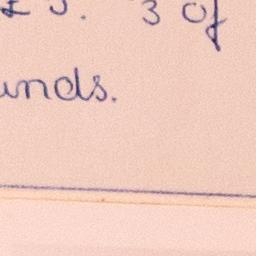 £5. 3 of
unds.